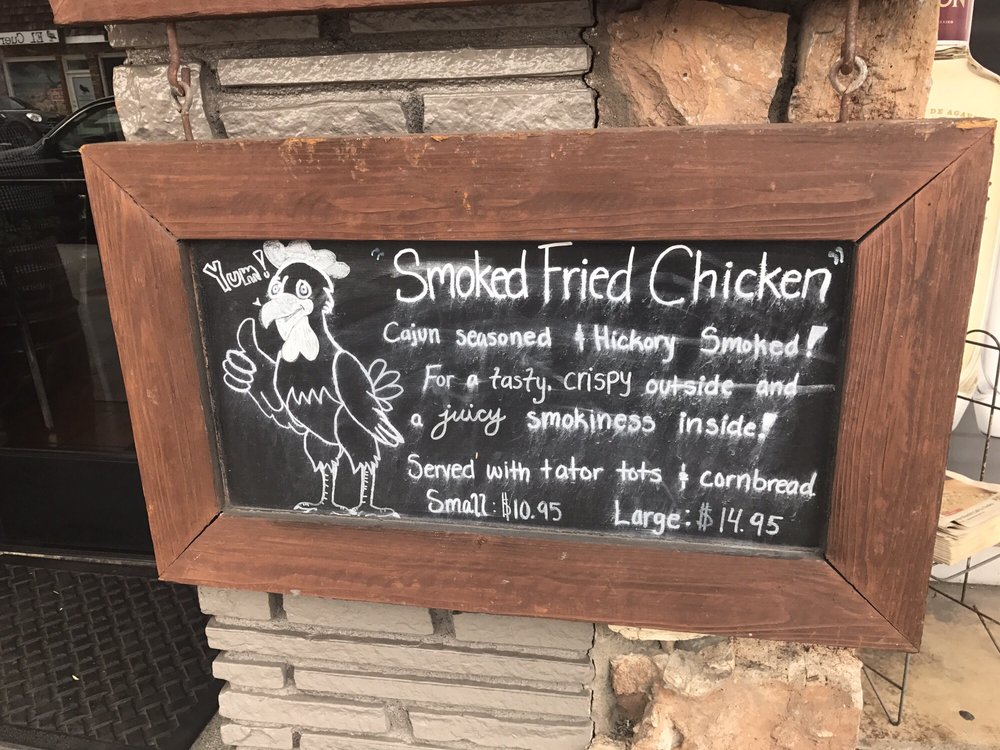 4 EL Cuer
DE AGAV
Yumm!
"Smoked Fried Chicken"
Cajun seasoned & Hickory Smoked!
For a tasty, crispy outside and
a juicy smokiness inside!
Served with tator tots & cornbread
Small: $10.95 Large: $14.95